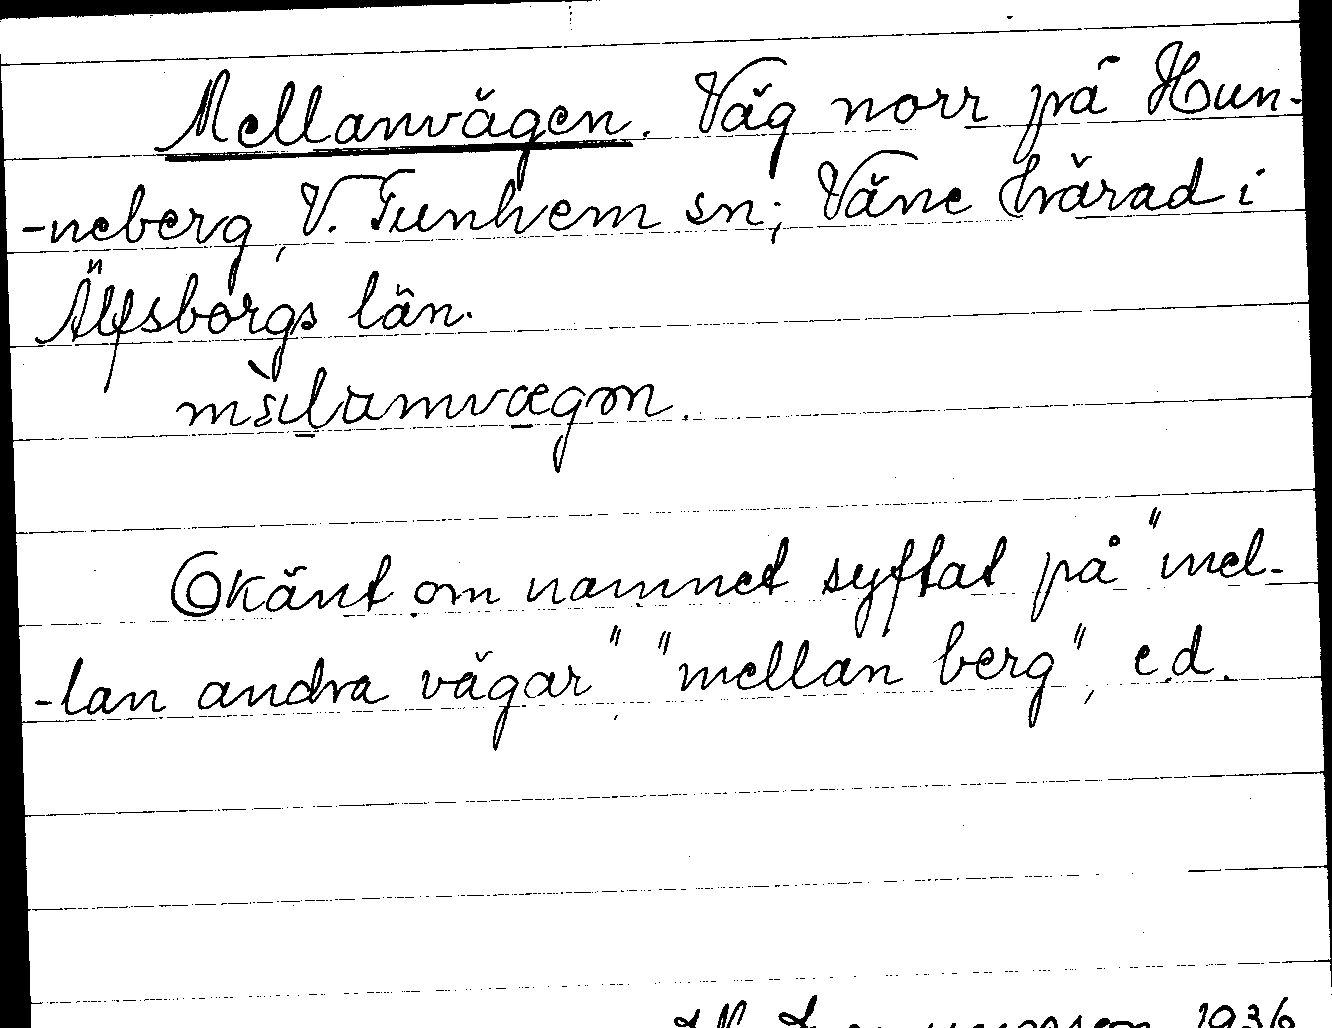 Mellanvägen. Väg norr på Hun-
-neberg, V. Tunhem sn; Väne härad i
Älfsborgs län.
Okänt om namnet syftat på "mel-
-lan andra vägar", "mellan berg", e.d.
1936